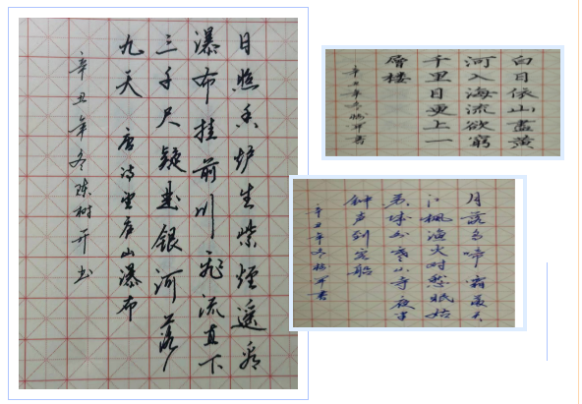 日照香炉生紫煙遥看
瀑布挂前川飛流直下
三千尺疑是银河落
九天 唐诗望庐山瀑布
辛丑年冬陈树开书
白日依山盡黄
河入海流欲窮
千里目更上一
層楼
辛丑年冬树开書
月落乌啼霜满天
江枫渔火对愁眠姑
苏城外寒山寺夜半
钟声到客船
辛丑年冬树开書